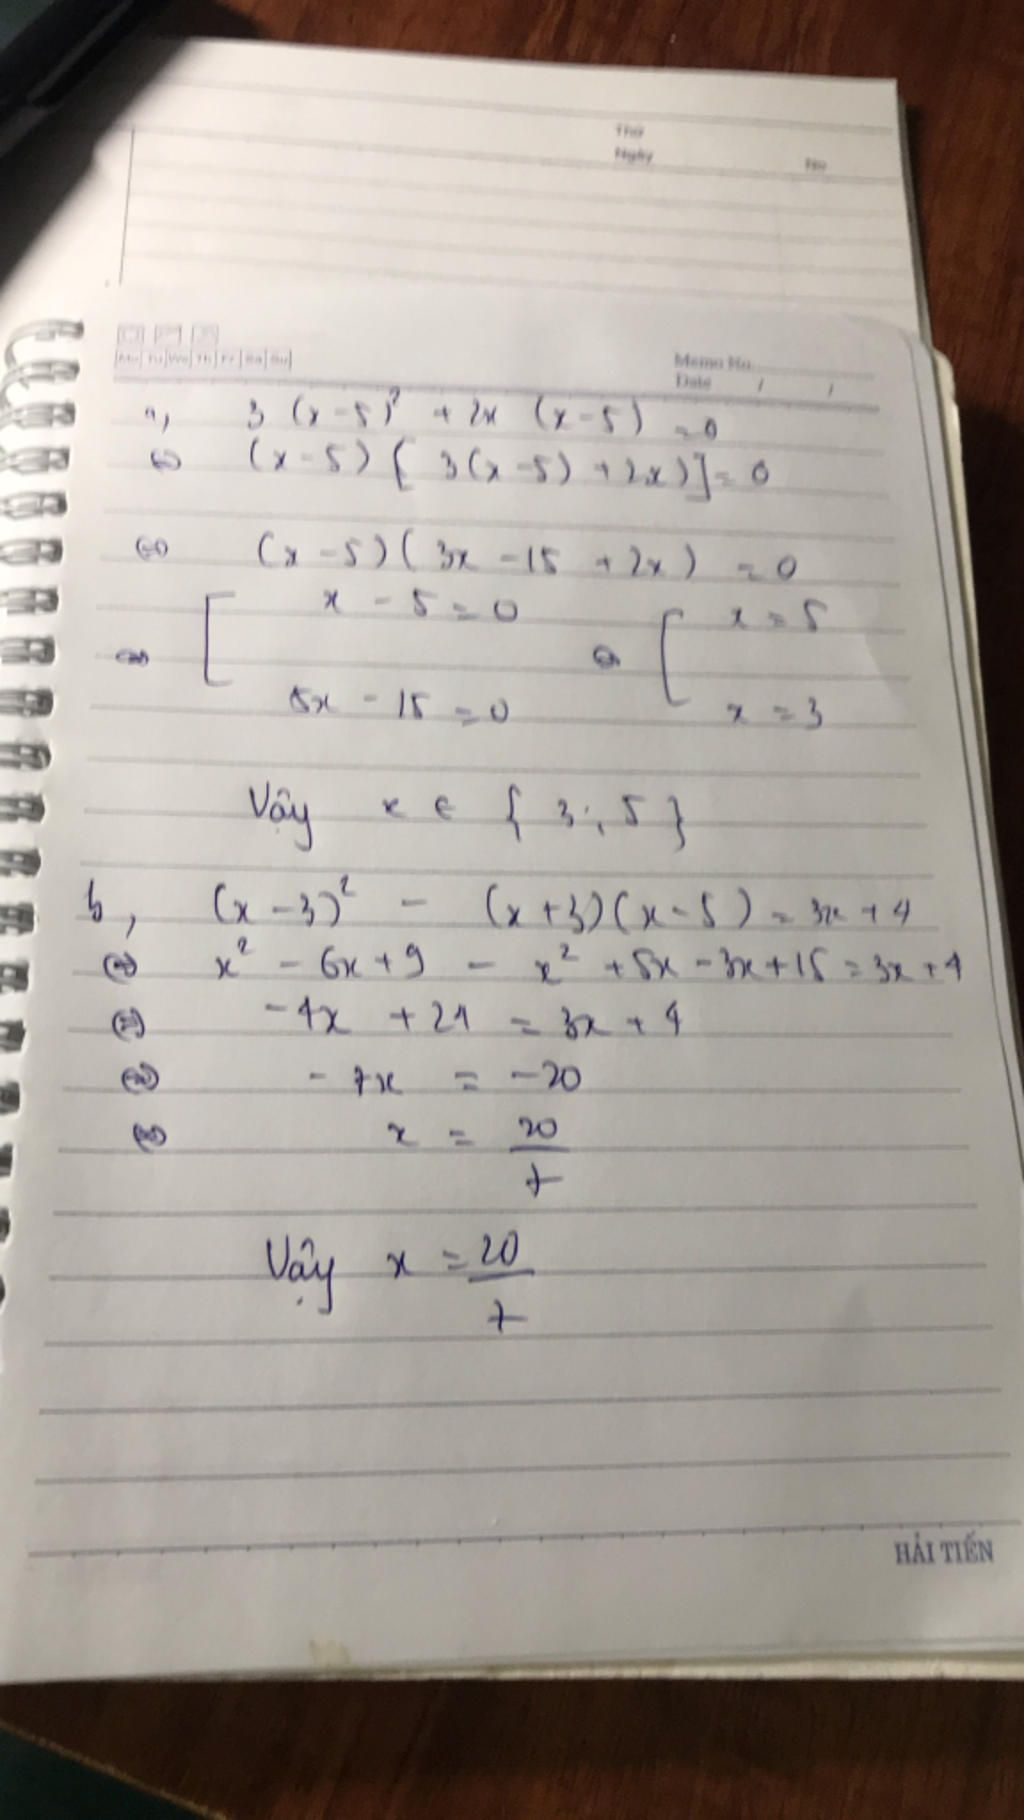 Thứ
Ngày
No
Mo Tu We Th Fr Sa Su
Memo No.
Date / /
a, 3 (x - 5)² + 2x (x - 5) = 0
⇔ (x - 5) [ 3(x - 5) + 2x)] = 0
⇔ (x - 5)(3x - 15 + 2x) = 0
⇔ [ x - 5 = 0 ⇔ [ x = 5
5x - 15 = 0 x = 3
Vậy x ∈ { 3 ; 5 }
b, (x - 3)² - (x + 3)(x - 5) = 3x + 4
⇔ x² - 6x + 9 - x² + 5x - 3x + 15 = 3x + 4
⇔ -4x + 24 = 3x + 4
⇔ - 7x = -20
⇔ x = 20/7
Vậy x = 20/7
HẢI TIẾN